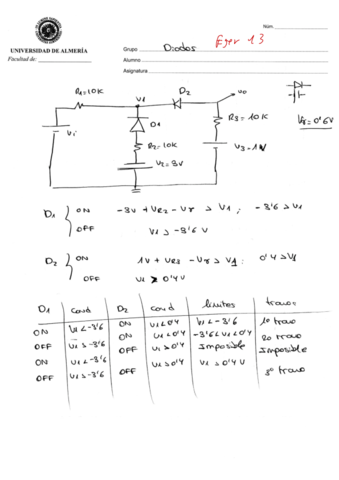 Núm.
Ejer 13
UNIVERSIDAD DE ALMERÍA
Grupo Diodos
Facultad de:
Alumno
Asignatura
R1=10K
V1
D2
vo
D1
R3=10K
Vγ=0'6V
Vi
R2=10K
V2=3V
V3=1V
D1 ON -3V + VR2 - Vγ > V1 ; -3'6 > V1
OFF V1 > -3'6 V
D2 ON 1V + VR3 - Vγ > V1 ; 0'4 > V1
OFF V1 > 0'4V
D1 cond D2 cond limites tramos
ON V1 < -3'6 ON V1 < 0'4 V1 < -3'6 1º tramo
OFF V1 > -3'6 ON V1 < 0'4 -3'6 < V1 < 0'4 2º tramo
ON V1 < -3'6 OFF V1 > 0'4 Imposible Imposible
OFF V1 > -3'6 OFF V1 > 0'4 V1 > 0'4 V 3º tramo